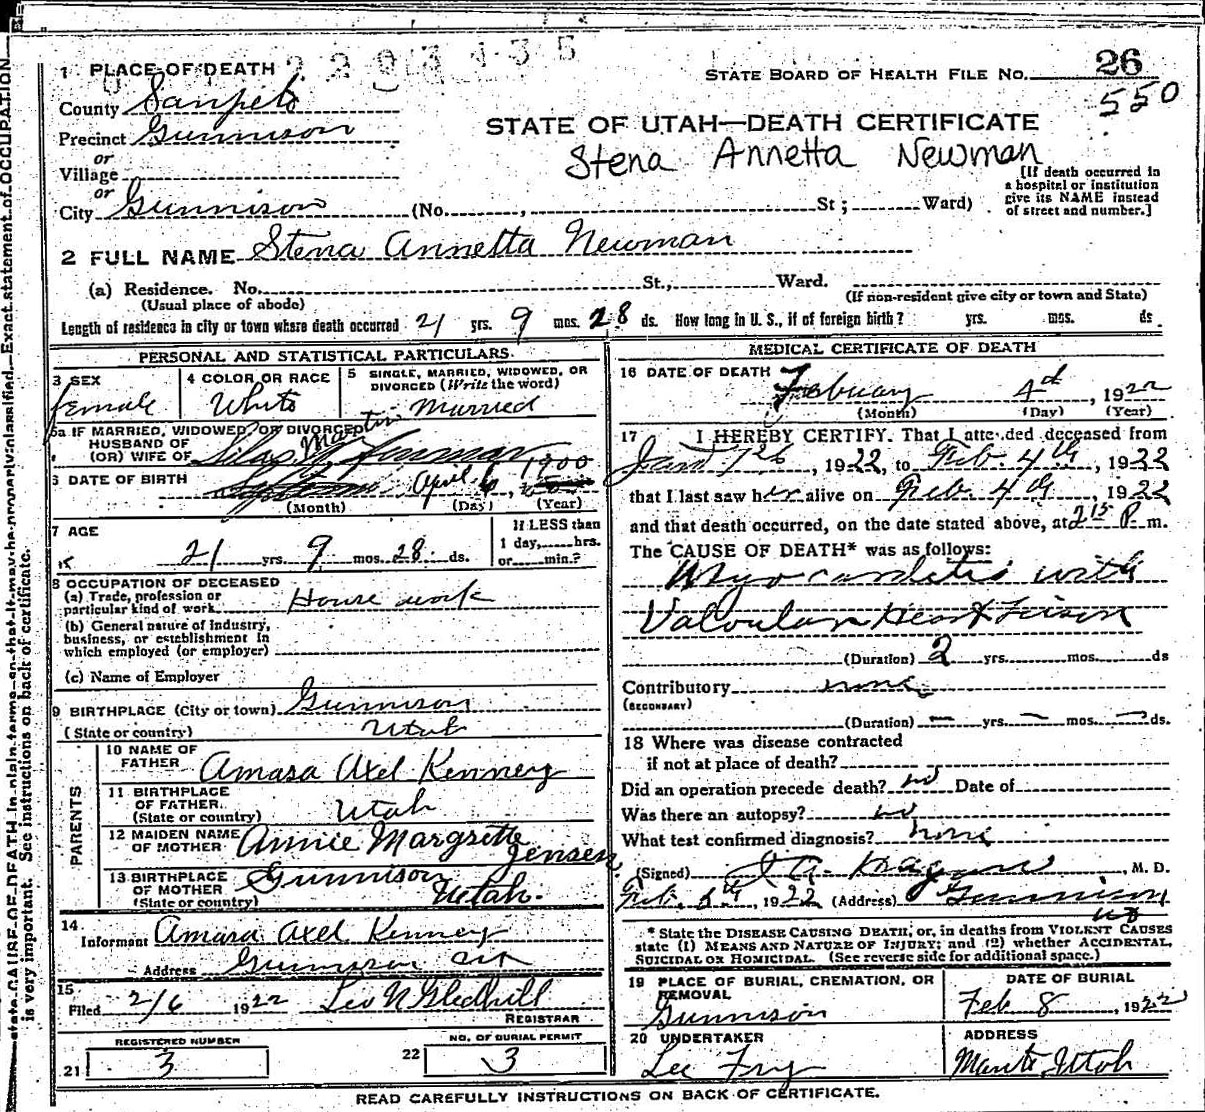 1 PLACE OF DEATH
STATE BOARD OF HEALTH FILE NO. 26
550
County Sanpete
Precinct Gunnison
STATE OF UTAH—DEATH CERTIFICATE
Stena Annetta Newman
or
Village
or
City Gunnison (No. , St; Ward)
[If death occurred in
a hospital or institution
give its NAME instead
of street and number.]
2 FULL NAME Stena Annetta Newman
(a) Residence. No. St., Ward.
(Usual place of abode)
(If non-resident give city or town and State)
Length of residence in city or town where death occurred 21 yrs. 9 mos. 28 ds. How long in U. S., if of foreign birth? yrs. mos. ds
PERSONAL AND STATISTICAL PARTICULARS.
3 SEX
female
4 COLOR OR RACE
White
5 SINGLE, MARRIED, WIDOWED, OR
DIVORCED (Write the word)
Married
5a IF MARRIED, WIDOWED, OR DIVORCED
HUSBAND OF
(OR) WIFE OF Silas Martin Newman
6 DATE OF BIRTH April 6, 1900
(Month) (Day) (Year)
7 AGE
21 yrs. 9 mos. 28 ds.
If LESS than
1 day, hrs.
or min.?
8 OCCUPATION OF DECEASED
(a) Trade, profession or
particular kind of work House work
(b) General nature of industry,
business, or establishment in
which employed (or employer)
(c) Name of Employer
9 BIRTHPLACE (City or town) Gunnison
(State or country) Utah
PARENTS
10 NAME OF
FATHER Amasa Axel Kenney
11 BIRTHPLACE
OF FATHER
(State or country) Utah
12 MAIDEN NAME
OF MOTHER Annie Margrette
Jensen
13 BIRTHPLACE
OF MOTHER
(State or country) Gunnison
Utah.
14
Informant Amasa Axel Kenney
Address Gunnison Ut
15
Filed 2/6 1922 Leo N Gledhill
REGISTRAR
REGISTERED NUMBER
21 3
NO. OF BURIAL PERMIT
22 3
MEDICAL CERTIFICATE OF DEATH
16 DATE OF DEATH
February 4th, 1922
(Month) (Day) (Year)
17 I HEREBY CERTIFY. That I attended deceased from
Jan, 1922, to Feb. 4th, 1922
that I last saw her alive on Feb. 4th, 1922
and that death occurred, on the date stated above, at 2 15 P m.
The CAUSE OF DEATH* was as follows:
Myocarditis with
Valvular Heart Lesion
(Duration) 2 yrs. mos. ds
Contributory none
(SECONDARY)
(Duration) — yrs. — mos. — ds.
18 Where was disease contracted
if not at place of death?
Did an operation precede death? no Date of
Was there an autopsy? no
What test confirmed diagnosis? none
(Signed) M. D.
Feb. 1922 (Address) Gunnison
Ut
* State the DISEASE CAUSING DEATH, or, in deaths from VIOLENT CAUSES
state (1) MEANS AND NATURE OF INJURY; and (2) whether ACCIDENTAL,
SUICIDAL OR HOMICIDAL. (See reverse side for additional space.)
19 PLACE OF BURIAL, CREMATION, OR
REMOVAL
Gunnison
DATE OF BURIAL
Feb 8, 1922
20 UNDERTAKER
Lee Fry
ADDRESS
Manti, Utah
READ CAREFULLY INSTRUCTIONS ON BACK OF CERTIFICATE.
state CAUSE OF DEATH in plain terms so that it may be properly classified. Exact statement of OCCUPATION
is very important. See instructions on back of certificate.